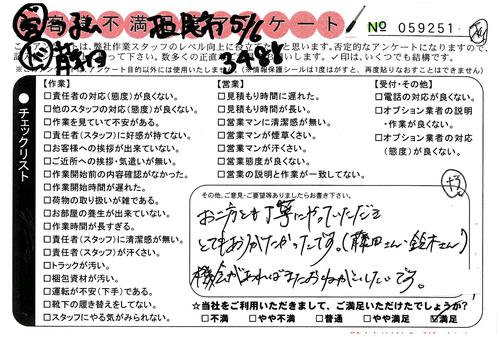 客様不満足アンケート
№ 059251
5/6
3488
アンケートは、弊社作業スタッフのレベル向上に役立てたいと思います。否定的なアンケートになりますので、
数多くの正直
✓印は、いくつでも結構です。
アンケート目的以外には使用いたしません。(※情報保護シールは1度がすと、再度貼りなおすことはできません)
●チェックリスト
【作業】
□責任者の対応(態度)が良くない。
□他のスタッフの対応(態度)が良くない。
□作業を見ていて不安がある。
□責任者(スタッフ)に好感が持てない。
□お客様への挨拶が出来ていない。
□ご近所への挨拶・気遣いが無い。
□作業開始前の内容確認がなかった。
□作業開始時間が遅れた。
□荷物の取り扱いが雑である。
□お部屋の養生が出来ていない。
□作業時間が長すぎる。
□責任者(スタッフ)に清潔感が無い。
□責任者(スタッフ)が汗くさい。
□トラックが汚い。
□梱包資材が汚い。
□運転が不安(下手)である。
□靴下の履き替えをしてない。
□スタッフにやる気がみられない。
【営業】
□見積もり時間に遅れた。
□見積もり時間が長い。
□営業マンに清潔感が無い。
□営業マンが煙草くさい。
□営業マンが汗くさい。
□営業態度が良くない。
□営業の説明と作業が一致してない。
【受付・その他】
□電話の対応が良くない。
□オプション業者の説明
・作業が良くない。
□オプション業者の対応
(態度)が良くない。
その他、ご意見・ご要望等ありましたらお書き下さい。
お二方とも丁寧にやっていただき
とてもありがたかったです。(藤田さん・鈴木さん)
機会があればまたおねがいしたいです。
☆当社をご利用いただきまして、ご満足いただけたでしょうか?
□不満 □やや不満 □普通 □やや満足 ☑満足